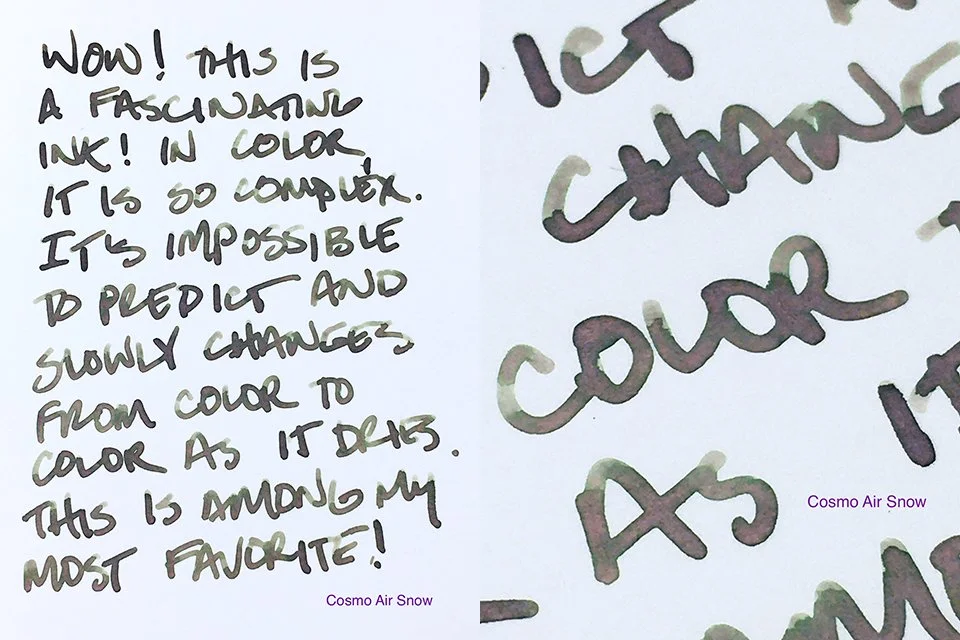 WOW! THIS IS
A FASCINATING
INK! IN COLOR,
IT IS SO COMPLEX.
IT'S IMPOSSIBLE
TO PREDICT AND
SLOWLY CHANGES
FROM COLOR TO
COLOR AS IT DRIES.
THIS IS AMONG MY
MOST FAVORITE!
Cosmo Air Snow
ICT
CHANG
COLOR
IT
AS
Cosmo Air Snow